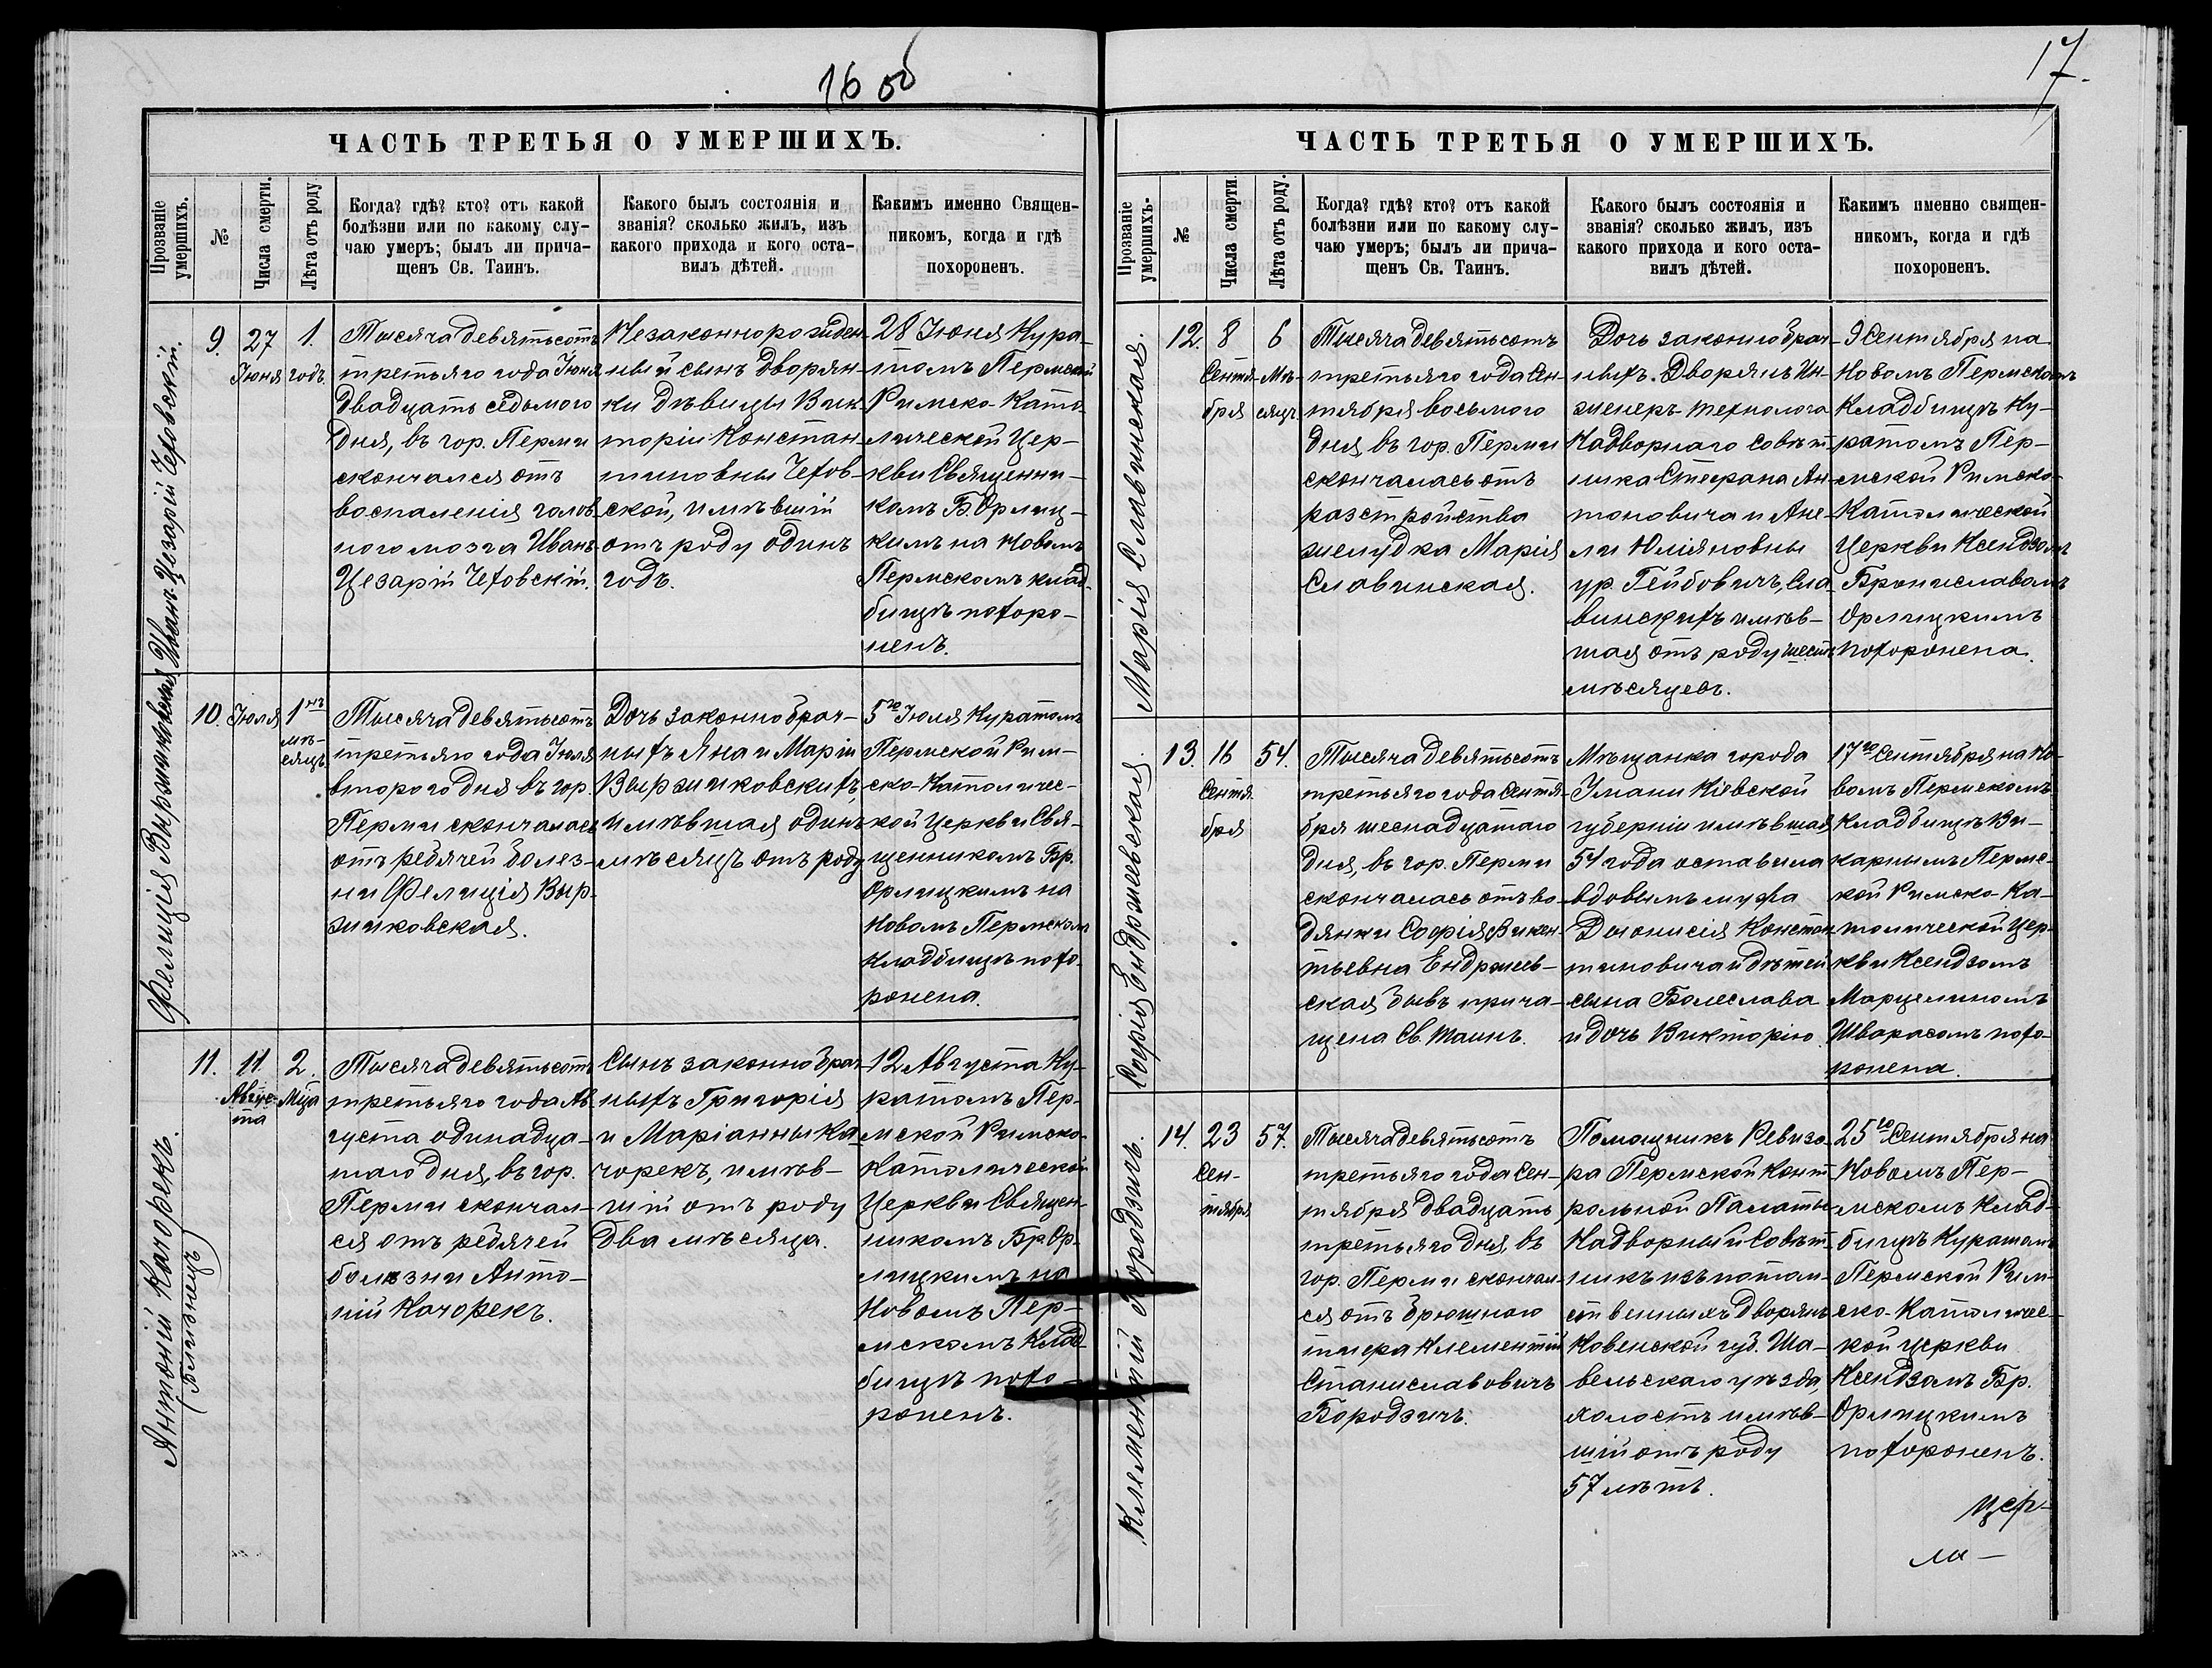 16 об
ЧАСТЬ ТРЕТЬЯ О УМЕРШИХЪ.
Прозваніе умершихъ.
№
Числа смерти.
Лѣта отъ роду
Когда? гдѣ? кто? отъ какой
болѣзни или по какому слу-
чаю умеръ; былъ ли прича-
щенъ Св. Таинъ.
Какого былъ состоянія и
званія? сколько жилъ, изъ
какого прихода и кого оста-
вилъ дѣтей.
Какимъ именно Священ-
никомъ, когда и гдѣ
похороненъ.
Иванъ-Цезарій Чеховскій.
9.
27
Іюня
1.
годъ.
Тысяча девятьсотъ
третьяго года Іюня
двадцать седьмого
дня, въ гор. Перми
скончался отъ
воспаленія голов-
ного мозга Иванъ
Цезарій Чеховскій.
Незаконнорожден-
ный сынъ дворян-
ки дѣвицы Вик-
торіи Констан-
тиновны Чехов-
ской, имѣвшій
отъ роду одинъ
годъ.
28 Іюня Кура-
томъ Пермской
Римско-Като-
лической Цер-
кви Священни-
комъ Б. Орлиц-
кимъ на Новомъ
Пермскомъ клад-
бищѣ похоро-
ненъ.
Фелиція Выржиковская
10.
Іюля
1нъ
мѣ-
сяцъ
Тысяча девятьсотъ
третьяго года Іюля
второго дня въ гор.
Перми скончалась
отъ ребячей болез-
ни Фелиція Выр-
жиковская.
Дочь законнобрач-
ныхъ Яна и Маріи
Выржиковскихъ,
имѣвшая одинъ
мѣсяцъ отъ роду
5го Іюля Куратомъ
Пермской Рим-
ско-Католичес-
кой Церкви Свя-
щенникомъ Бр.
Орлицкимъ на
Новомъ Пермскомъ
кладбищѣ похо-
ронена.
Антоній Качорекъ.
(Близнецъ)
11.
11
Авгус-
та
2.
Мца
Тысяча девятьсотъ
третьяго года Ав-
густа одинадца-
таго дня, въ гор.
Перми скончал-
ся отъ ребячей
болѣзни Анто-
ній Качорекъ.
Сынъ законнобрач-
ныхъ Григорія
и Маріанны Ка-
чорекъ, имѣв-
шій отъ роду
два мѣсяца.
12 Августа Ку-
ратомъ Пер-
мской Римско-
Католической
Церкви Священ-
никомъ Бр Ор-
лицкимъ на
Новомъ Пер-
мскомъ Клад-
бищѣ похо-
роненъ.
17.
ЧАСТЬ ТРЕТЬЯ О УМЕРШИХЪ.
Прозваніе умершихъ.
№
Числа смерти.
Лѣта отъ роду.
Когда? гдѣ? кто? отъ какой
болѣзни или по какому слу-
чаю умеръ; былъ ли прича-
щенъ Св. Таинъ.
Какого былъ состоянія и
званія? сколько жилъ, изъ
какого прихода и кого оста-
вилъ дѣтей.
Какимъ именно священ-
никомъ, когда и гдѣ
похороненъ.
Марія Славинская.
12.
8
Сентя-
бря
6
Мѣ-
сяцъ
Тысяча девятьсотъ
третьяго года Сен-
тября восьмого
дня, въ гор. Перми
скончалась отъ
разстройства
желудка Марія
Славинская.
Дочь законнобрач-
ныхъ. Дворянъ Ин-
женеръ-технолога
Надворнаго Совѣт-
ника Стефана Ан-
тоновича и Ане-
ли Юліяновны
ур. Гейбовичъ, Сла-
винскихъ имѣв-
шая отъ роду шесть
мѣсяцевъ.
9 Сентября на
Новомъ Пермскомъ
Кладбищѣ Ку-
ратомъ Пер-
мской Римско-
Католической
Церкви Ксендзомъ
Брониславомъ
Орлицкимъ
похоронена.
Софія Ендржеевская.
13.
16
Сентя-
бря
54.
Тысяча девятьсотъ
третьяго года Сентя-
бря шеснадцатаго
дня, въ гор. Перми
скончалась отъ во-
дянки Софія Викен-
тьевна Ендржеев-
ская, бывъ прича-
щена Св. Таинъ.
Мѣщанка города
Умани Кіевской
губерніи имѣвшая
54 года оставила
вдовымъ мужа
Діонисія Констан-
тиновича и дѣтей
сына Болеслава
и дочь Викторію
17го Сентября на Но-
вомъ Пермскомъ
Кладбищѣ Ви-
карнымъ Перме-
кой Римско-Ка-
толической Цер-
кви Ксендзомъ
Марцелиномъ
Шварасомъ похо-
ронена.
Клементій Бородзичъ.
14.
23
Сен-
тября
57.
Тысяча девятьсотъ
третьяго года Сен-
тября двадцать
третьяго дня, въ
гор. Перми скончал-
ся отъ брюшного
тифа Клементій
Станиславовичъ
Бородзичъ.
Помощникъ Ревизо-
ра Пермской Конт-
рольной Палаты
Надворный Совѣт-
никъ изъ потом-
ственныхъ дворянъ
Ковенской губ. Ша-
вельскаго уѣзда,
холостъ имѣв-
шій отъ роду
57 лѣтъ.
25го Сентября на
Новомъ Пер-
мскомъ Клад-
бищѣ Куратомъ
Пермской Рим-
ско-Католичес-
кой церкви
Ксендзомъ Бр.
Орлицкимъ
похороненъ.